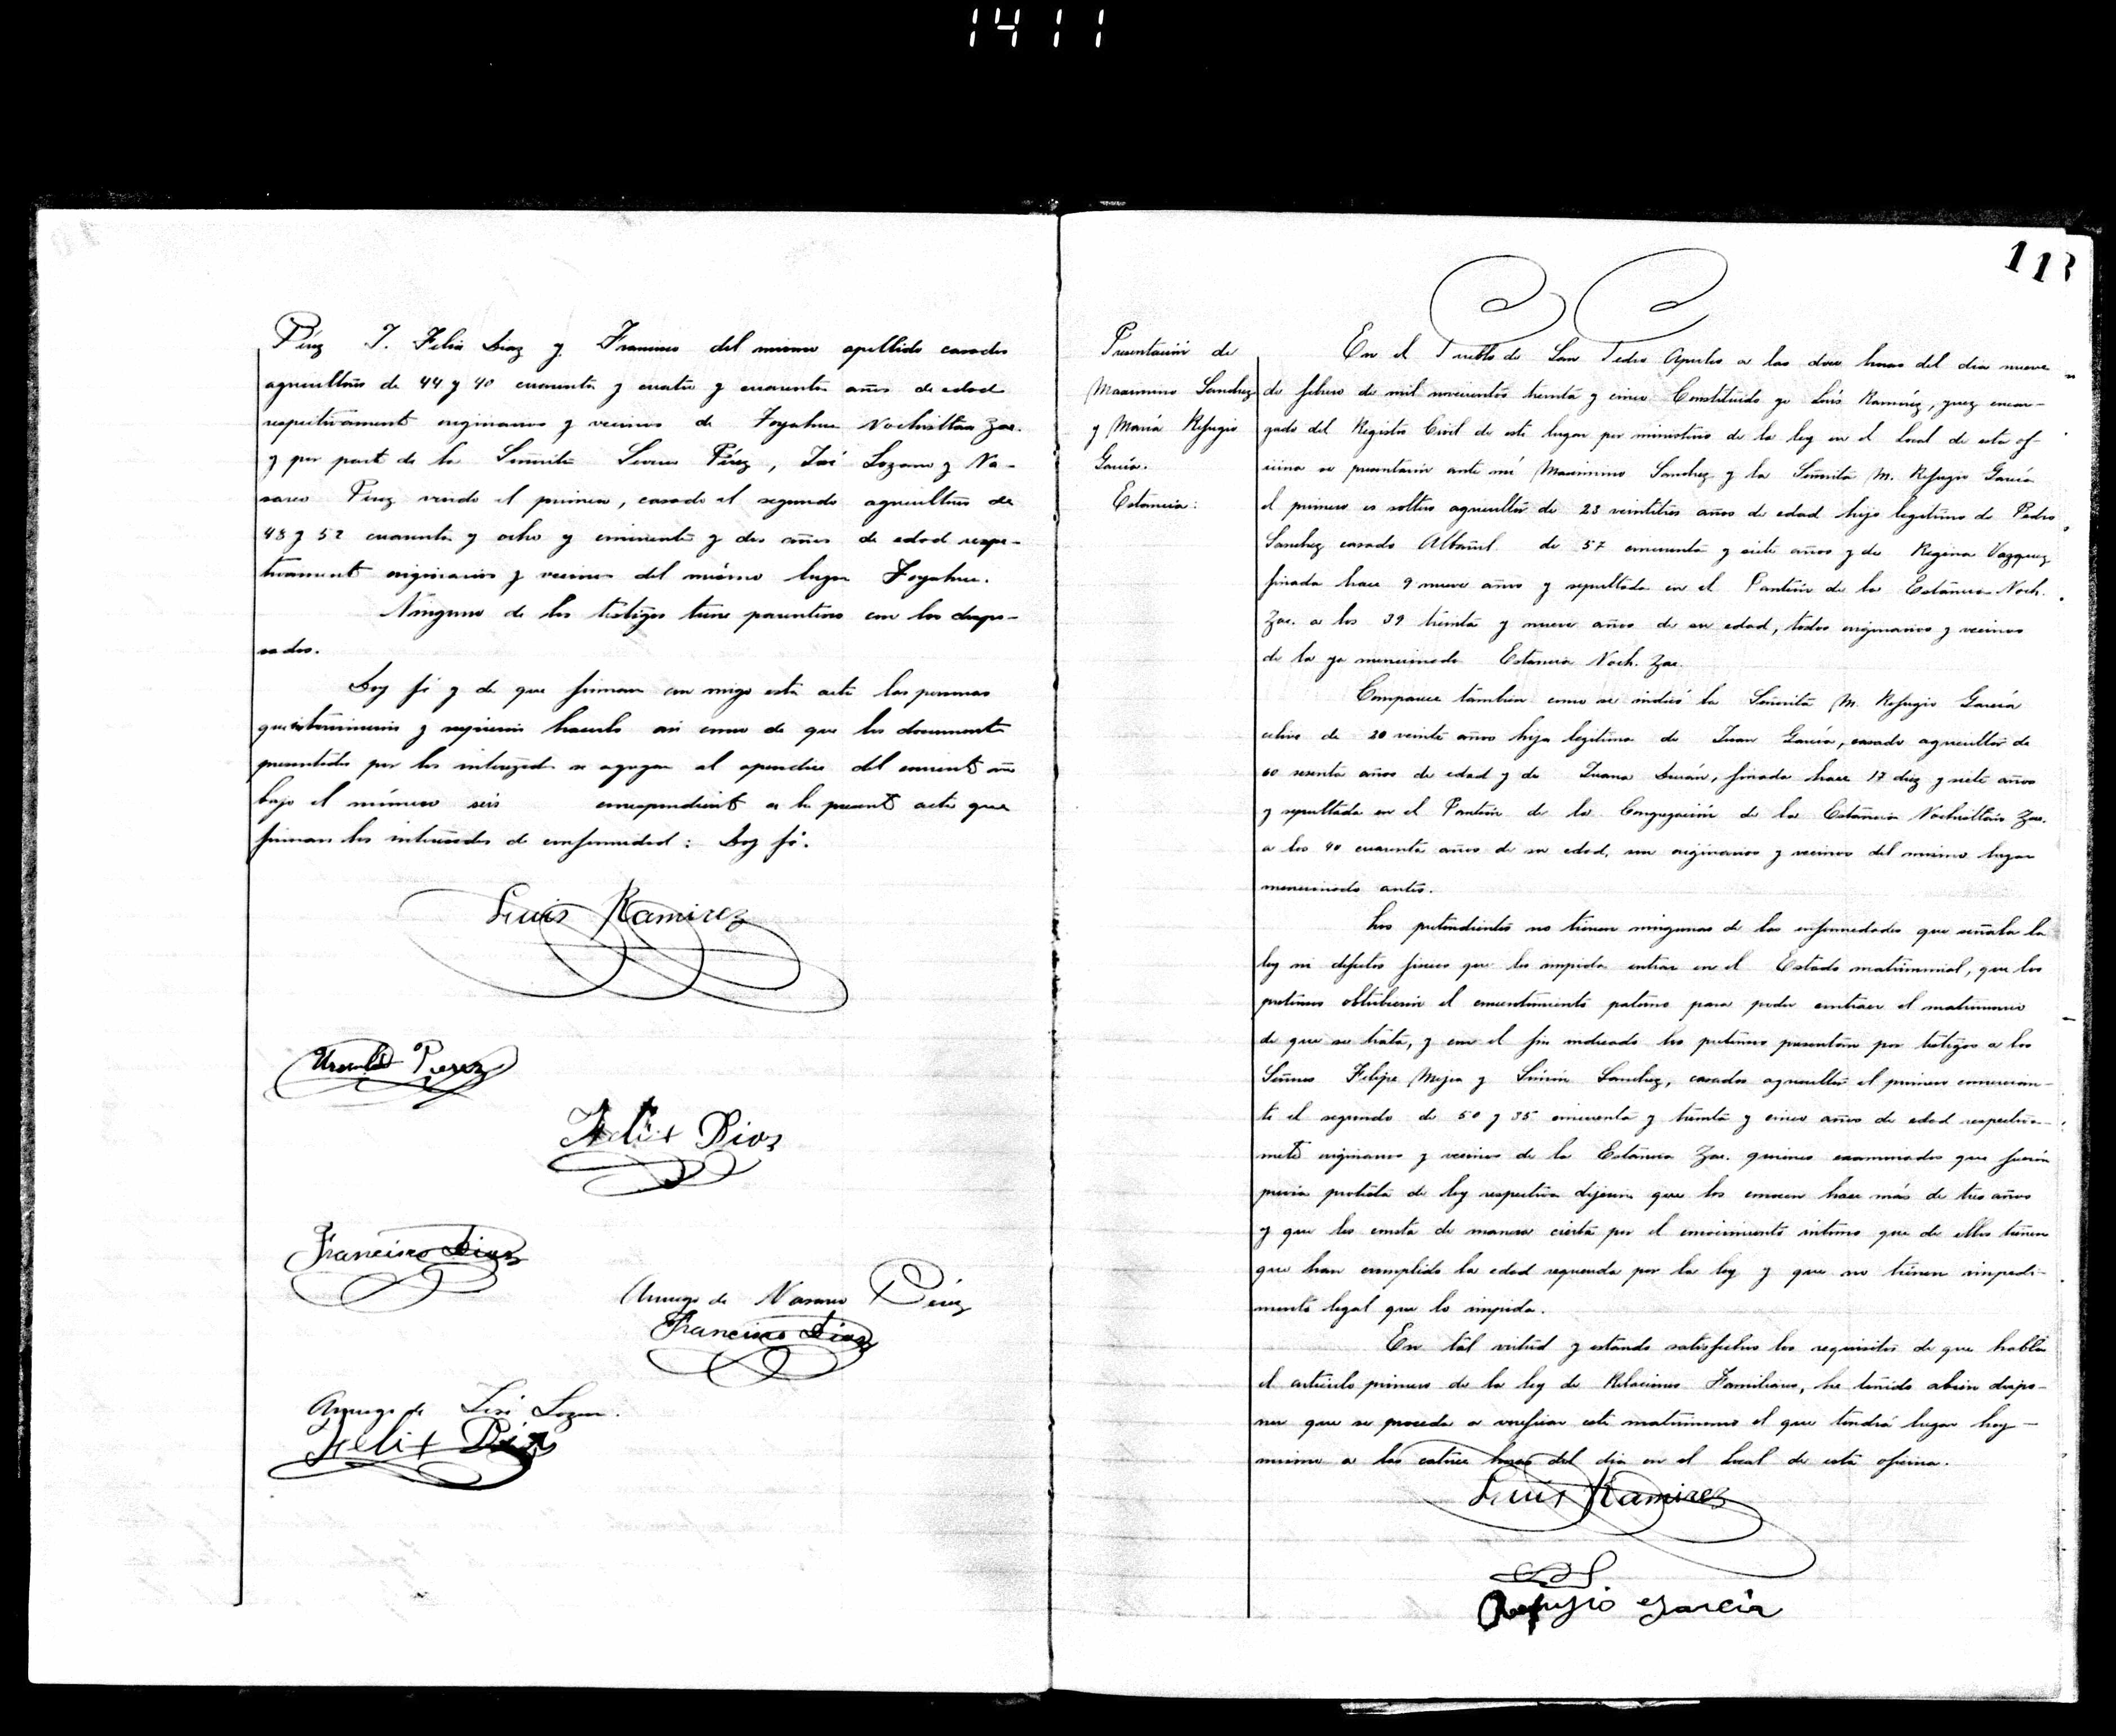 1411
Pérez J. Felix Diaz y Francisco del mismo apellido casados
agricultores de 44 y 40 cuarenta y cuatro y cuarenta años de edad
respectivamente originarios y vecinos de Toyahua Nochistlan Zac.
y por parte de la Señorita Pérez, José Lozano y Na-
sareo Pérez viudo el primero, casado el segundo agricultores de
48 y 52 cuarenta y ocho y cincuenta y dos años de edad respe-
tivamente originarios y vecinos del mismo lugar Toyahua.
Ninguno de los testigos tiene parentesco con los despo-
sados.
Doy fé y de que firman con migo esta acta las personas
que intervinieron y supieron hacerlo asi como de que los documentos
presentados por los interezados se agregan al apendice del corriente año
bajo el número seis correspondiente a la presente acta que
firman los interesados de conformidad: Doy fé.
Luis Ramirez
Perez
Felix Dias
Francisco Dias
Arruego de Nasareo Pérez
Francisco Dias
Arruego de José Lozano.
Felix Dias
113
Presentación de
Maximino Sanchez
y María Refugio
García.
Estancia:
En el Pueblo de San Pedro Apulco a las doce horas del dia nueve
de febrero de mil novecientos treinta y cinco Constituido yo Luís Ramiréz, juez encar-
gado del Registro Civil de este lugar por ministerio de la ley en el Local de esta of-
icina se presentarón ante mí Maximino Sanchez y la Señorita M. Refugio García
el primero es soltero agricultor de 23 veintitres años de edad hijo legitimo de Pedro
Sanchez casado Albañil de 57 cincuenta y siete años y de Regina Vazquez
finada hace 9 nueve años y sepultada en el Panteón de la Estancia Noch.
Zac. a los 39 treinta y nueve años de su edad, todos originarios y vecinos
de la ya mencionada Estancia Noch. Zac.
Comparece tambien como se indicó la Señorita M. Refugio García
celive de 20 veinte años hija legitima de Juan García, casado agricultor de
60 sesenta años de edad y de Juana Durán, finada hace 17 diez y siete años
y sepultada en el Panteón de la Congregación de la Estancia Nochistlán Zac.
a los 40 cuarenta años de su edad, son originarios y vecinos del mismo lugar
mencionado antes.
Los pretendientes no tienen ningunas de las enfermedades que señala la
ley ni defectos fisicos que les impida entrar en el Estado matrimonial, que los
pretensos obtubierón el consentimiento paterno para poder contraer el matrimonio
de que se trata, y con el fin indicado los pretensos presentan por testigos a los
Señores Felipe Mejia y Simón Sanchez, casados agricultor el primero comercian-
te el segundo de 50 y 35 cincuenta y treinta y cinco años de edad respectiva-
mete originarios y vecinos de la Estancia Zac. quienes examinados que fuerón
previa protesta de ley respectiva dijeron que los conocen hace más de tres años
y que les consta de manera cierta por el conocimiento intimo que de ellos tienen
que han cumplido la edad requerida por la ley y que no tienen impedi-
mento legal que lo impida.
En tal virtud y estando satisfechos los requisitos de que habla
el artículo primero de la ley de Relaciones Familiares, he tenido abien dispo-
ner que se proceda a verificar este matrimonio el que tendrá lugar hoy
mismo a las catorce horas del dia en el Local de esta oficina.
Luis Ramirez
Refugio Garcia